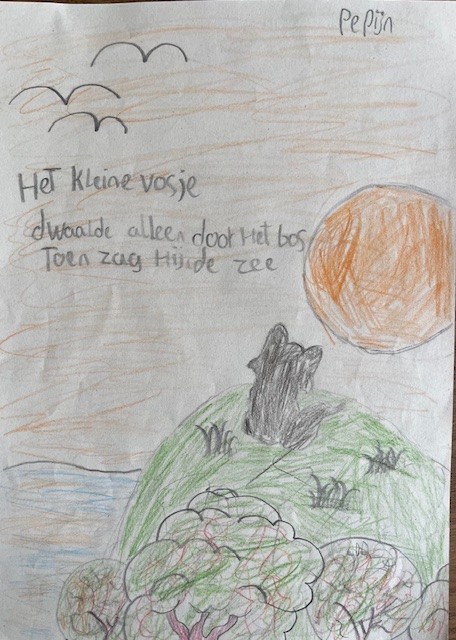 Pepijn
Het kleine vosje
dwaalde alleen door Het bos
Toen zag Hij de zee